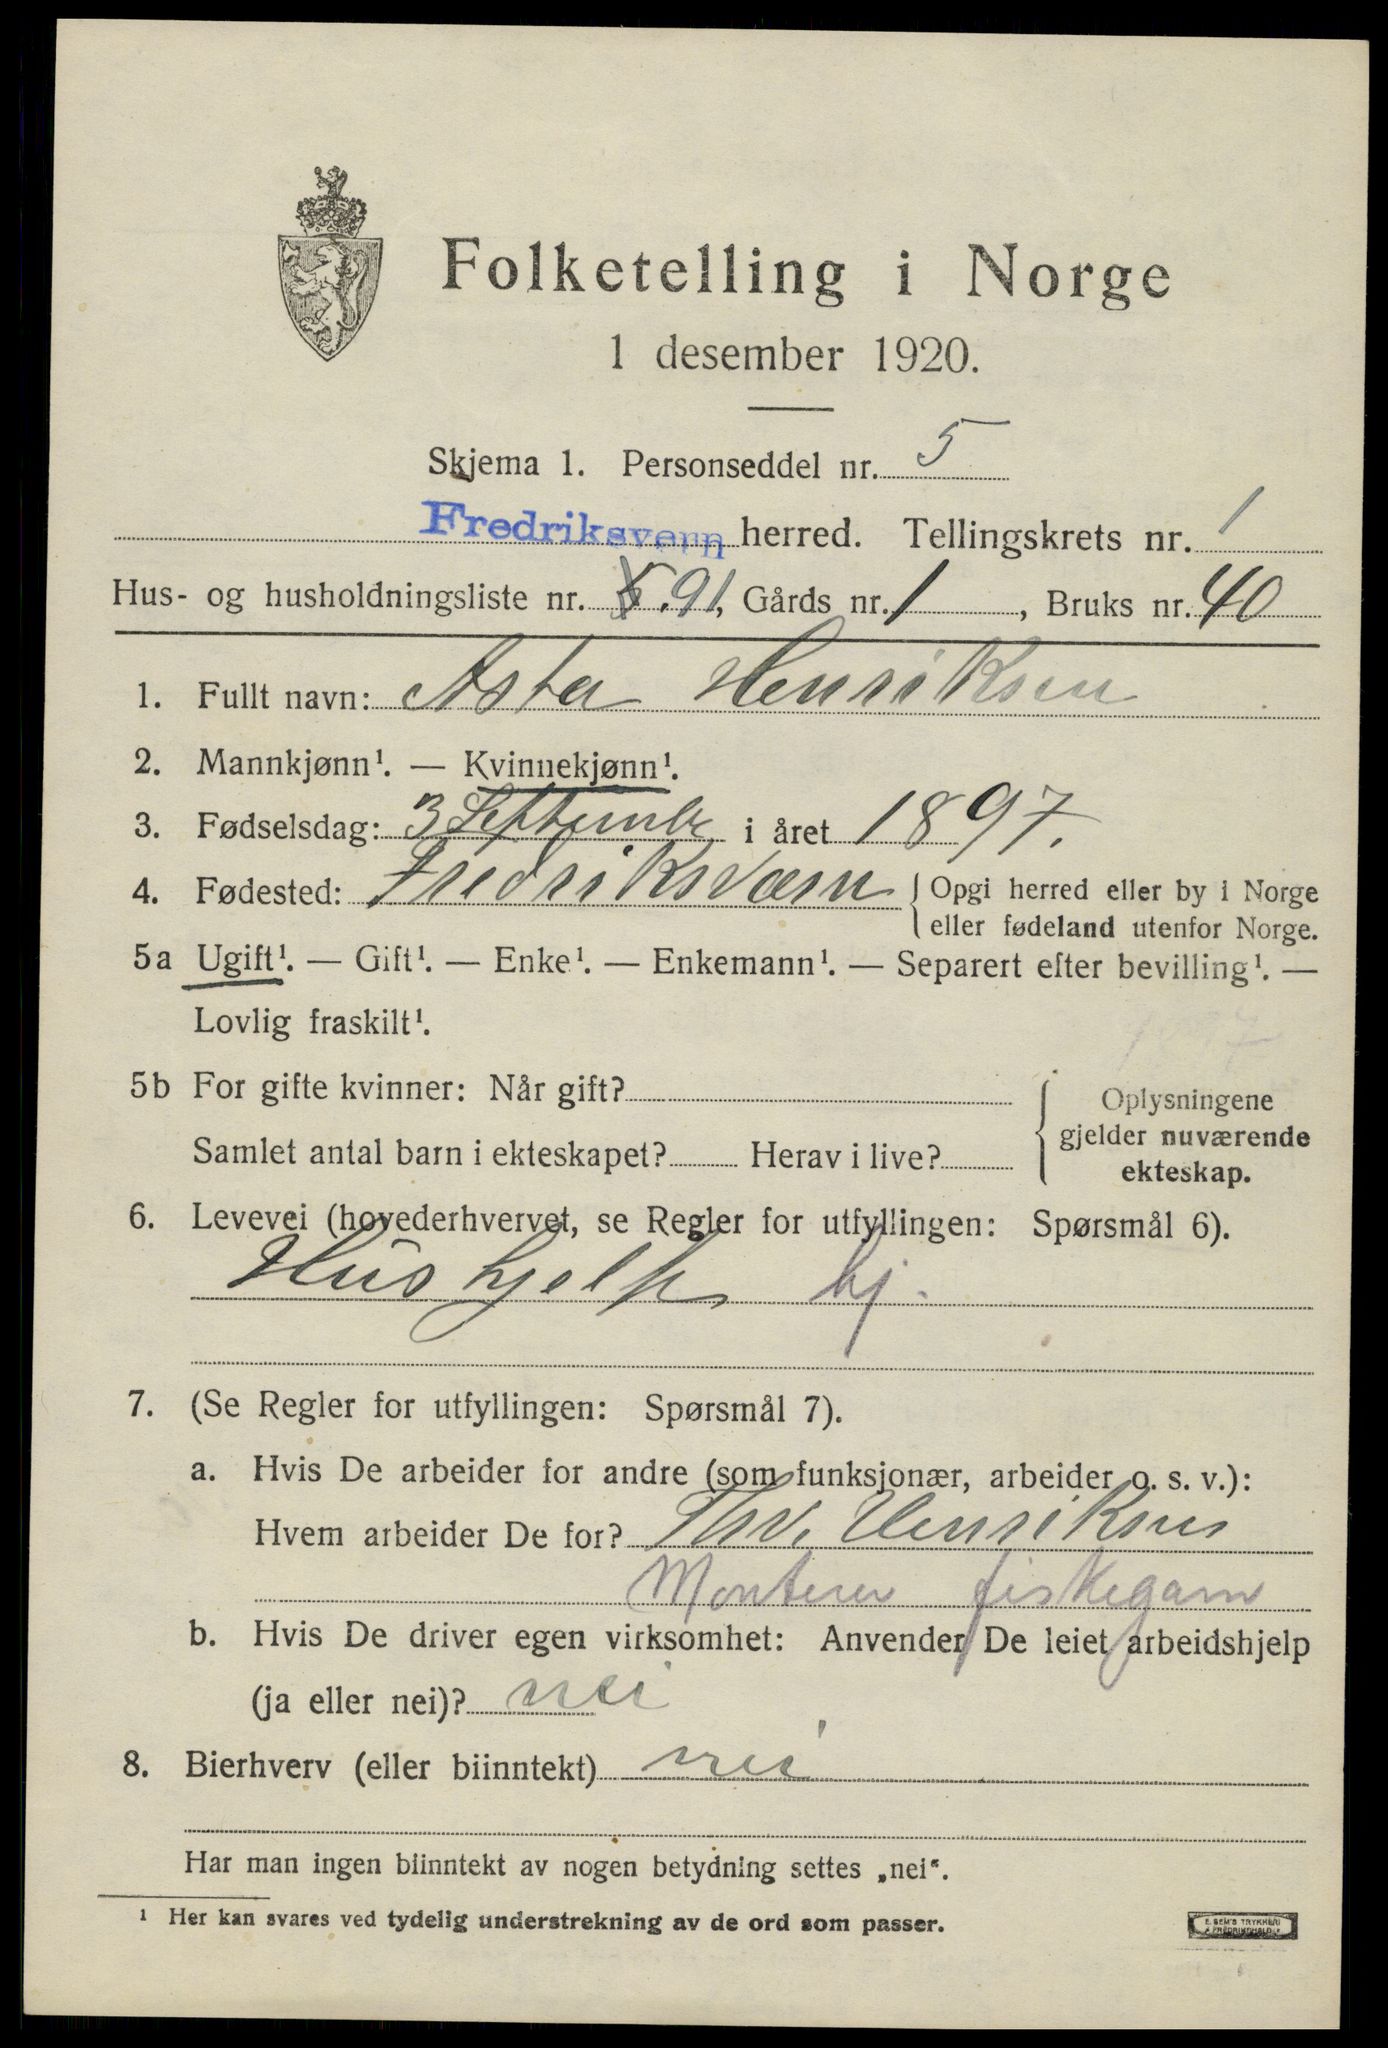 Folketelling i Norge
1 desember 1920.
Skjema 1. Personseddel nr. 5
Fredriksvern herred. Tellingskrets nr. 1
Hus- og husholdningsliste nr. 5. 91, Gårds nr. 1, Bruks nr. 40
1. Fullt navn: Asta Henriksen
2. Mannkjønn¹. — Kvinnekjønn¹.
3. Fødselsdag: 3 Septembr i året 1897.
4. Fødested: Fredriksværn { Opgi herred eller by i Norge
eller fødeland utenfor Norge.
5a Ugift¹. — Gift¹. — Enke¹. — Enkemann¹. — Separert efter bevilling¹. —
Lovlig fraskilt¹.
5b For gifte kvinner: Når gift?
Samlet antal barn i ekteskapet? Herav i live?
{ Oplysningene
gjelder nuværende
ekteskap.
6. Levevei (hovederhvervet, se Regler for utfyllingen: Spørsmål 6).
Hushjelp hj.
7. (Se Regler for utfyllingen: Spørsmål 7).
a. Hvis De arbeider for andre (som funksjonær, arbeider o. s. v.):
Hvem arbeider De for? Thv. Henriksen
Monterer fiskegarn
b. Hvis De driver egen virksomhet: Anvender De leiet arbeidshjelp
(ja eller nei)? nei
8. Bierhverv (eller biinntekt) nei
Har man ingen biinntekt av nogen betydning settes „nei“.
¹ Her kan svares ved tydelig understrekning av de ord som passer.
E. SEM'S TRYKKERI
FREDRIKSHALD